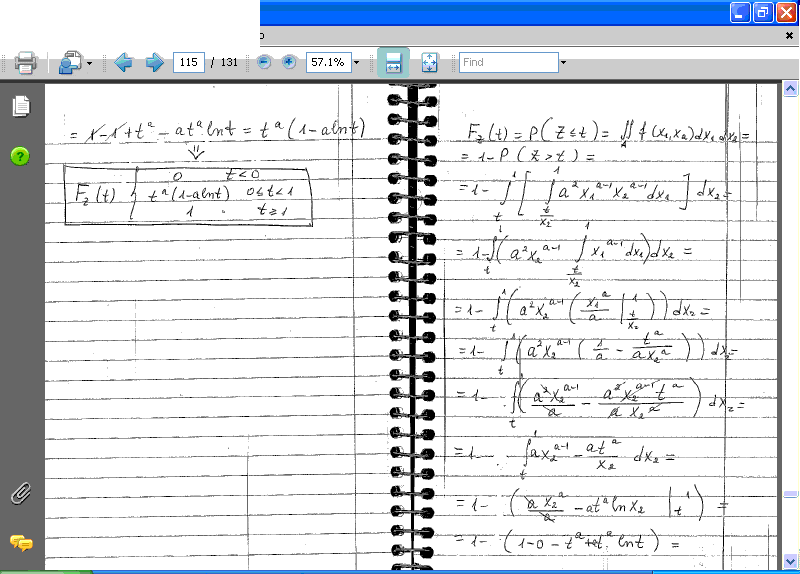 115 / 131 57.1% Find
= 1-1+t^a - at^a lnt = t^a (1-alnt)
⇓
F_z(t) { 0 t<0
t^a(1-alnt) 0≤t<1
1 t≥1
F_z(t) = P(Z≤t) = ∬_A f(x_1,x_2)dx_1 dx_2 =
= 1-P(Z>t) =
= 1- ∫_t^1 [ ∫_{t/x_2}^1 a^2 x_1^{a-1} x_2^{a-1} dx_1 ] dx_2 =
= 1- ∫_t^1 ( a^2 x_2^{a-1} ∫_{t/x_2}^1 x_1^{a-1} dx_1 ) dx_2 =
= 1- ∫_t^1 ( a^2 x_2^{a-1} ( x_1^a/a |_{t/x_2}^1 )) dx_2 =
= 1- ∫_t^1 ( a^2 x_2^{a-1} ( 1/a - t^a/(a x_2^a) )) dx_2 =
= 1- ∫_t^1 ( a^2 x_2^{a-1}/a - a^2 x_2^{a-1} t^a/(a x_2^a) ) dx_2 =
= 1- ∫_t^1 a x_2^{a-1} - at^a/x_2 dx_2 =
= 1- ( a x_2^a/a - at^a ln x_2 |_t^1 ) =
= 1- ( 1-0 - t^a + at^a lnt ) =